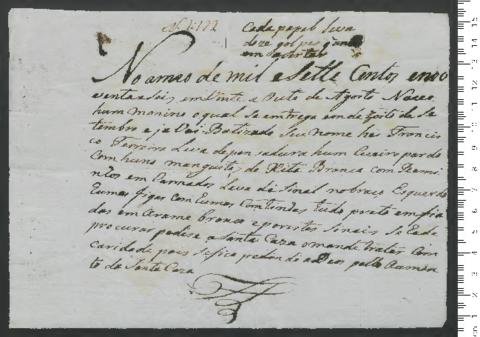 No 1:122
Cada papel leva
doze golpes q' an
em Sacortar
No ameo de mil e Sette Centos e nov
venta e dois em Vinte e Outo de Agosto Naceo
hum menino o qual se entrega em de zoito de Se
tembro e ja Vai Batizado Seu nome he Francis
co Leva de pen sadura hum Cueiro pardo
Com huns manguitos de Xita Branca com Rami
nhos em Carnados Leva de Sinal no braço Esquerdo
Humas figas Com Humas Contas tudo preto emfia
das em arame branco e por estes Sinais Se Eade
procurar pedese a Santa Caza o mande tratar Com
Caridade pois Se fica pedindo a Deos pello aumen
to da Santa Caza